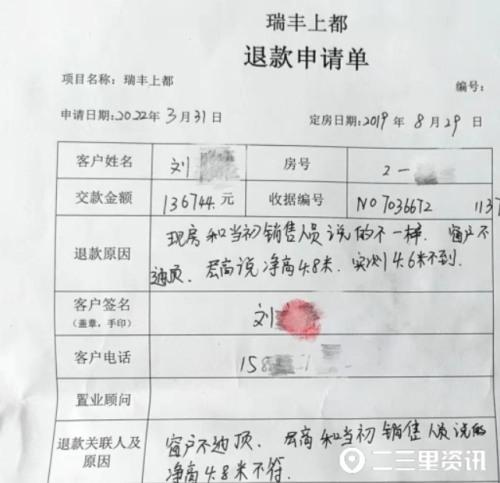 瑞丰上都
退款申请单
项目名称：瑞丰上都 编号：
申请日期：2022年3月31日 定房日期：2019年8月29日
客户姓名 刘 房号 2一
交款金额 136744.元 收据编号 NO7036672 113
退款原因 现房和当初销售人员说的不一样．窗户不
通顶．层高说净高4.8米．实测4.6米不到．
客户签名
（盖章，手印） 刘
客户电话 158
置业顾问
退款关联人及
原因 窗户不通顶．层高和当初销售人员说的
净高4.8米不符．
二三里资讯